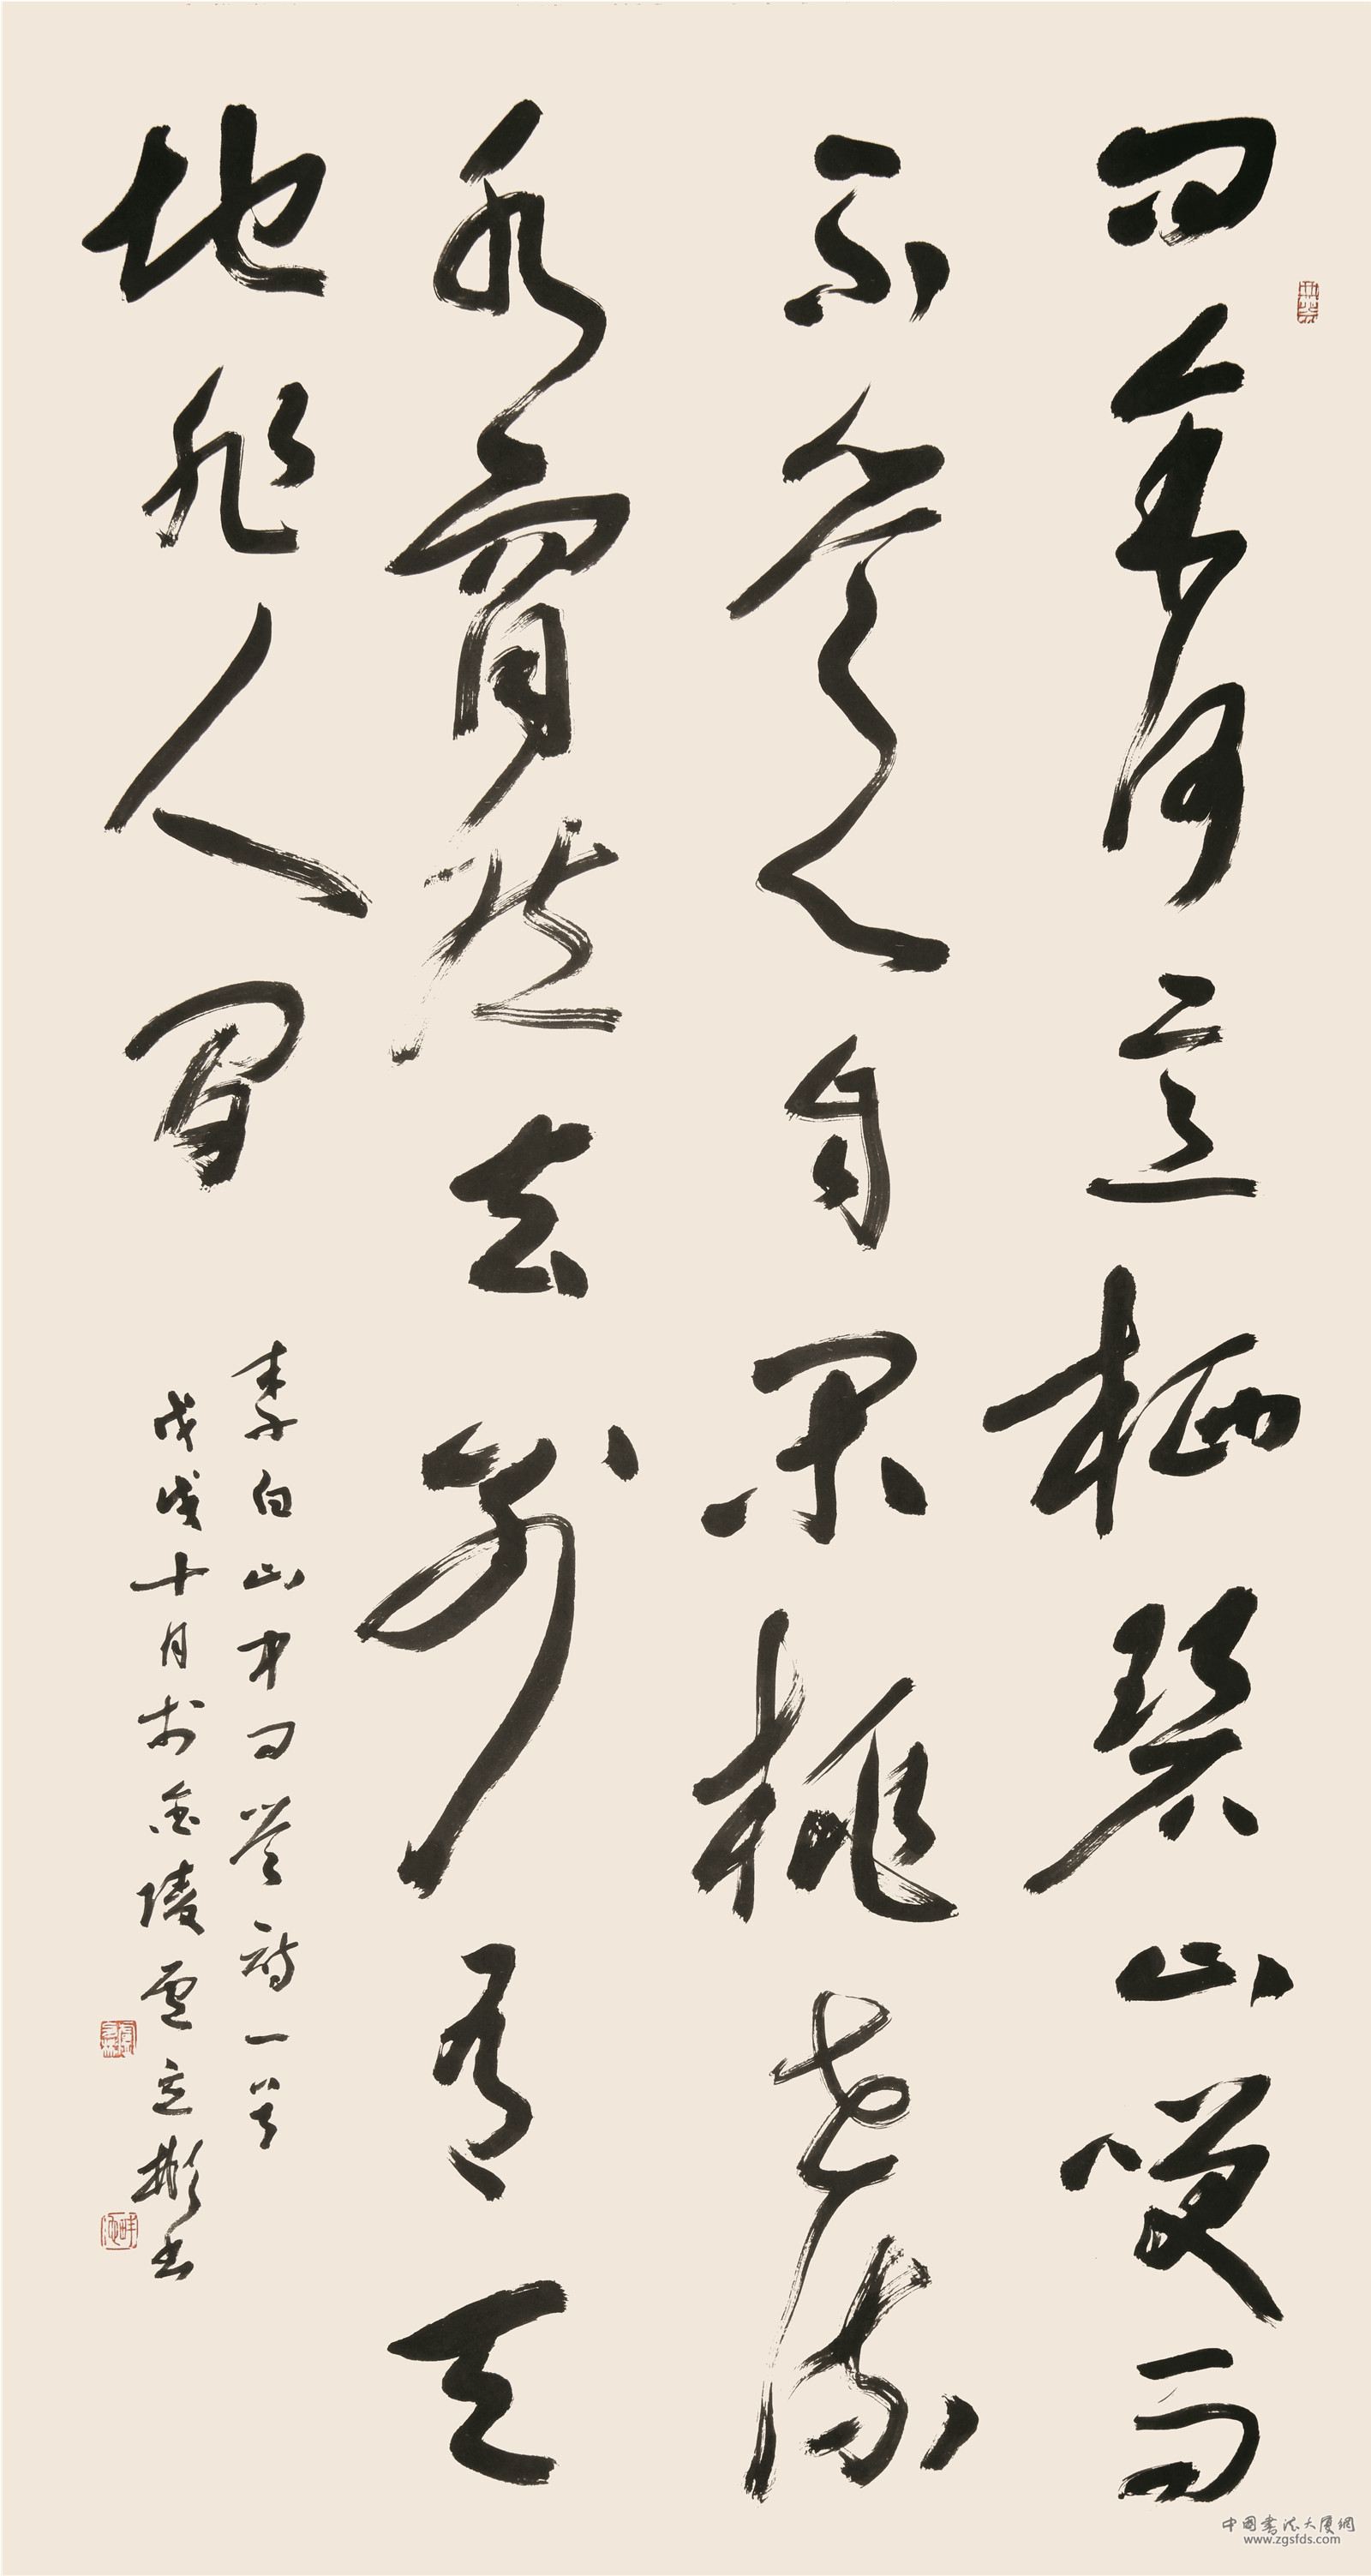 問余何意栖碧山笑而
不答心自閑桃花流
水窅然去別有天
地非人間
李白山中問答詩一首
戊戌十月於金陵立彬書
中國書法大厦網
www.zgsfds.com